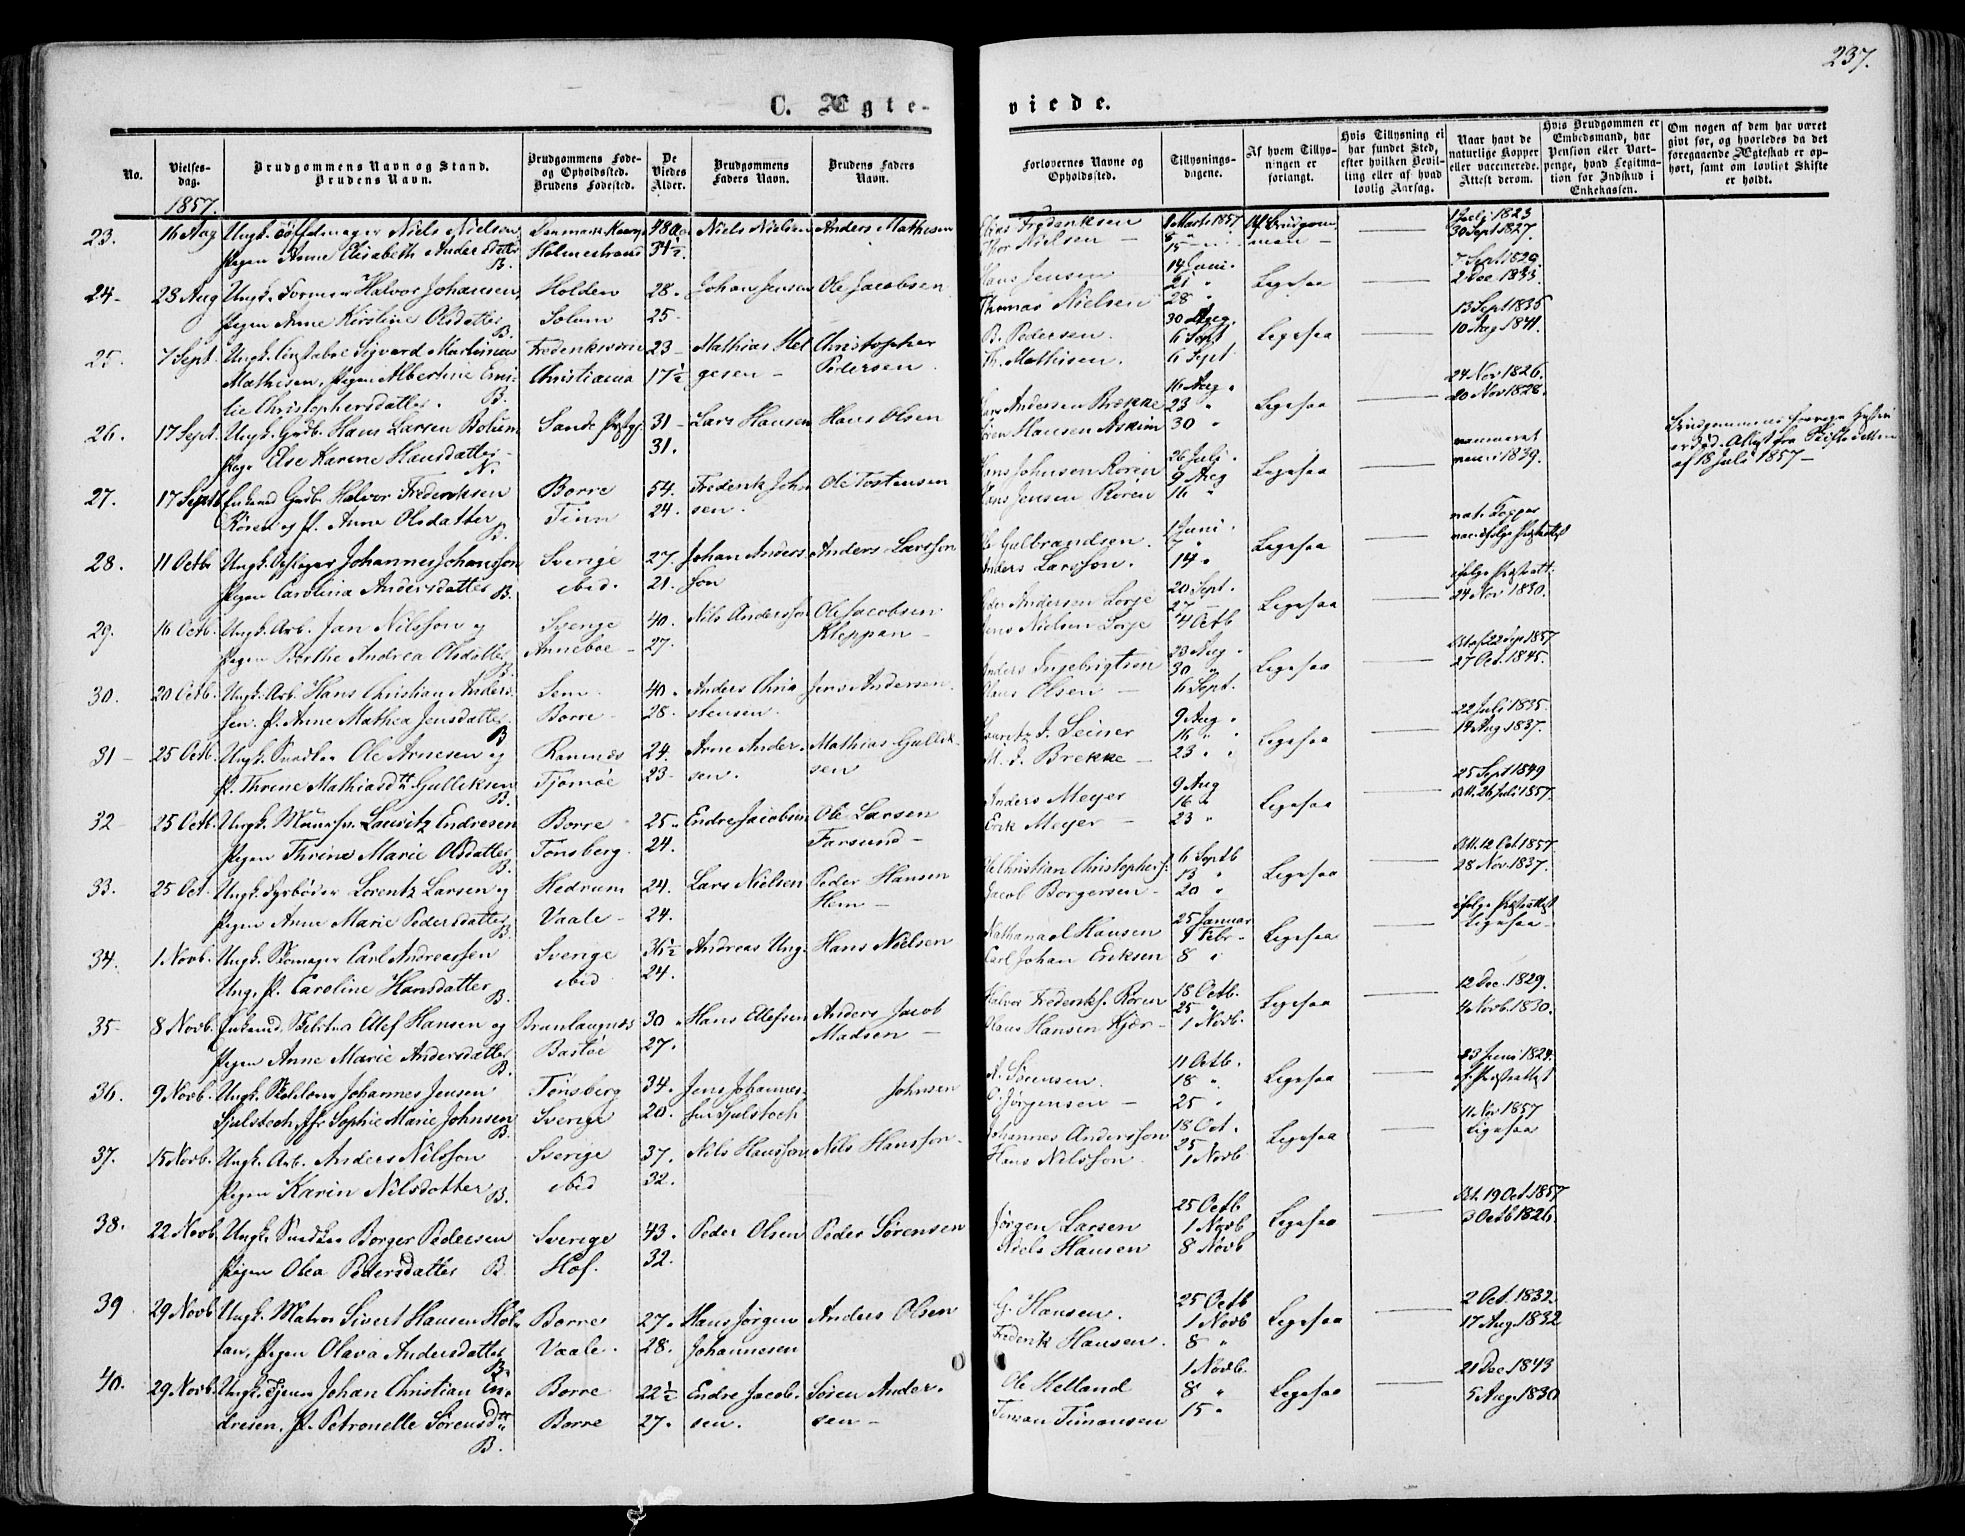 237.
C. Ægte-
viede.
No.
Vielses-
dag.
Brudgommens Navn og Stand.
Brudens Navn.
Brudgommens Føde-
og Opholdssted.
Brudens Fødested.
De
Viedes
Alder.
Brudgommens
Faders Navn.
Brudens Faders
Navn.
Forlovernes Navne og
Opholdssted.
Tillysnings-
dagene.
Af hvem Tillys-
ningen er
forlangt.
Hvis Tillysning ei
har fundet Sted,
efter hvilken Bevil-
ling eller af hvad
lovlig Aarsag.
Naar havt de
naturlige Kopper
eller vaccinerede.
Attest derom.
Hvis Brudgommen er
Embedsmand, har
Pension eller Vart-
penge, hvad Legitma-
tion for Indskud i
Enkekassen.
Om nogen af dem har været
givt før, og hvorledes da det
foregaaende Ægteskab er op-
hørt, samt om lovligt Skifte
er holdt.
1857.
23. 16 Aug Ungk. Niels Nielsen Niels Nielsen Anders Mathesen
Pigen Anne Elisabeth Andersdatter Holmestrand 34½
B.
Fredriksen 1 Marts 1857 Af Brudgom- 1 Juli 1823
Thor Nielsen 8 " man - 30 Sept 1827.
15
24 - 23 Aug Ungk. Halvor Johansen, Holden 28. Johan Jensen Ole Jacobsen
Pigen Anne Kirstine Olsdatter Solum 25
B.
Hans Jensen 14 Juni. Ligesaa 7 Sept 1829.
21 " 2 Dec. 1833.
Thomas Nielsen 28 "
25. 7 Sept. Ungk. Sigvard Martinius Frederiksværn 23 - Mathias Hel Christopher
Mathisen, Pigen Albertine Emi- Christiania 17½ gesen - Pedersen
lie Christophersdatter. B.
B. Pedersen. 30 Aug. Ligesaa 13 Sept 1835
6 Sept 10 Aug 1841.
Th. Mathisen. 6 Sept
26. 17 Sept. Ungk. Gdb. Hans Larsen Sande 31 - Lars Hansen Hans Olsen
Pige Else Karine Hansdatter - 31.
N.
Andersen Brekke 16 Aug. Ligesaa 24 Nov 1826.
23 " 20 Nov 1828.
Hansen Askim 30 "
27. 17 Sept Enkemd Gdb. Halvor Frederiksen Borre 54. Frederik John Ole Tostensen
Røren og P. Anne Olsdatter Tinn 24. sen.
B.
Hans Johnsen Røren 26 Juli. Ligesaa
9 Aug 1839.
Hans Jensen Røren 16 "
Brudgommens forrige Hustru
er død. Attest fra Skifteretten
af 18 Juli 1857 -
28. 11 Octb Ungk. Johannes Johansson Sverige 27. Johan Anders Anders Larsson
Pigen Carolina Andersdatter B. ibid. 21. son
Gulbrandsen. 1 Juni. Ligesaa nat. Kopper
7 "
Anders Larsson. 14 "
29. 16 Octb. Ungk. Arb. Jan Nilsson og Sverige 40. Nils Andersson Ole Jacobsen
Pigen Berthe Andrea Olsdatter Anneboe - 27. Kleppan -
B.
Andersen Lorje 20 Sept. Ligesaa
27 24 Nov 1830.
Jens Nielsen Lorje 4 Octb
30. 20 Octb. Ungk. Arb. Hans Christian Anders Sem 40. Anders Chri Jens Andersen
sen. P. Anne Mathea Jensdatter Borre 28. stensen.
B
Anders Ingebrigtsen 23 Aug. Ligesaa 22 Sep 1857
30 " 27 Oct. 1845.
Olsen - 6 Sept.
31 - 25 Octb. Ungk. Snedker Ole Arnesen og Ramnæs 24. Arne Ander- Mathias Gullik-
P. Thrine Mathiasdtt Gulliksen Tjømøe 23 - sen. sen
B.
Lauretz J. Seiner 9 Aug. Ligesaa 22 Juli 1835.
16 " 14 Aug 1837.
M. J. Brekke - 23 "
32 25 Octb. Ungk. Lauritz Endresen Borre 25. Endre Jacobsen Ole Larsen
Pigen Thrine Marie Olsdatter Tønsberg. 24. Farsund -
B.
Anders Meyer 9 Aug Ligesaa 25 Sept 1849
16 " Att. 26 Juli 1857.
Erik Meyer - 23 "
33. 25 Oct. Ungk. Fyrbøder Lorentz Larsen og Hedrum 24. Lars Nielsen Peder Hansen
Pigen Anne Marie Pedersdatter Vaale - 24. Hem -
B.
Christian Christophers. 6 Septb Ligesaa Att. 12 Oct 1857.
13 " 28 Nov 1837.
Jacob Borgersen - 20 "
34. 1 Novb. Ungk. Skomager Carl Andreassen Sverige 36½ Andreas Ung- Hans Nielsen
Ung. P. Caroline Hansdatter ibid 24.
B.
Nathanael Hansen 25 Januar Ligesaa
1 Febr - Ligesaa -
Carl Johan Eriksen 8 "
35 - 8 Novb. Enkemd. Ellef Hansen og Brunlaugnæs 30. Hans Ellefsen Anders Jacob
Pigen Anne Marie Andersdatter Bastøe 27. Madsen -
B.
Halvor Frederiks. Røren 18 Octb. Ligesaa 12 Dec. 1829.
25 " 4 Novb. 1830.
Hans Hansen Kjær - 1 Novb.
36. 9 Novb. Ungk. Johannes Jensen Tønsberg 34. Jens Johannes- Johnsen
Gjelstoch, Jfr Sophie Marie Johnsen Sverige 20. sen Gjelstoch
B.
A. Sørensen. 11 Octb. Ligesaa 23 Juni 1824.
18 "
O. Jørgensen - 25 "
37. 15 Novb. Ungk. Arb. Anders Nilsson Sverige 37. Nils Hansson Nils Hansson -
Pigen Karin Nilsdotter B. ibid 32.
Johannes Andersson 18 Oct. Ligesaa 11 Nov 1857
25 Ligesaa
Hans Nilsson. 1 Novb
38. 22 Novb. Ungk. Snedker Borger Pedersen Sverige 43. Peder Olsen Peder Sørensen
Pigen Olea Pedersdatter B. Hof. 32.
Jørgen Larsen 25 Octb Ligesaa Att. 19 Oct 1857
1 Novb 3 Octb 1826.
Niels Hansen 8 Novb
39 29 Novb Ungk. Matros Sivert Hansen Hol- Borre 27. Hans Jørgen Anders Olsen
tan, Pigen Olava Andersdatter Vaale. 28. Johannesen
B.
G. Hansen. 25 Octb Ligesaa 2 Oct. 1832.
1 Novb 17 Aug 1832
Frederik Hansen. 8 "
40. 29 Novb. Ungk. Johan Christian En- Borre 22½ Endre Jacob- Søren Ander-
dresen, P. Petronelle Sørensdtt Borre 27. sen. sen -
B.
Ole Helland 1 Novb. Ligesaa 21 Dec 1843
8 " 5 Aug 1830
Timan Timansen 15 "